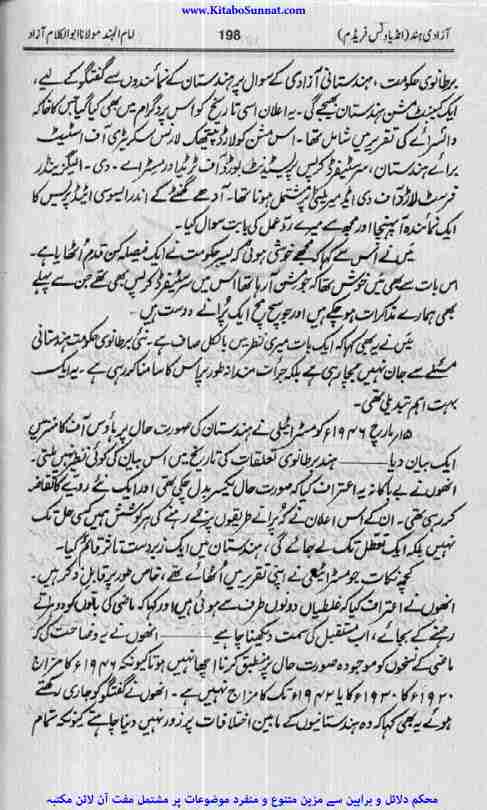 www.KitaboSunnat.com
آزادی ہند (انڈیا ونس فریڈم)
198
امام الہند مولانا ابوالکلام آزاد
برطانوی حکومت، ہندستانی آزادی کے سوال پر ہندستان کے نمائندوں سے گفتگو کے لیے،
ایک کیبنٹ مشن ہندستان بھیجے گی۔ یہ اعلان اسی تاریخ کو اس پروگرام میں بھی کیا گیا جس کا خاکہ
وائسرائے کی تقریر میں شامل تھا۔ اس مشن کو لارڈ پیتھک لارنس سکریٹری آف اسٹیٹ
برائے ہندستان، سر سٹیفرڈ کرپس پریسیڈنٹ بورڈ آف ٹریڈ اور مسٹر اے۔ وی۔ الیگزینڈر
فرسٹ لارڈ آف دی ایڈمیریلٹی پر مشتمل ہونا تھا۔ آدھے گھنٹے کے اندر ایسوسی ایٹڈ پریس کا
ایک نمائندہ آ پہنچا اور مجھ سے میرے ردِّ عمل کی بابت سوال کیا۔
میں نے اس سے کہا کہ مجھے خوشی ہوئی کہ لیبر حکومت نے ایک فیصلہ کن قدم اُٹھایا ہے۔
اس بات سے بھی میں خوش تھا کہ جو مشن آرہا تھا اس میں سر سٹیفرڈ کرپس بھی تھے جن سے پہلے
بھی ہمارے مذاکرات ہو چکے ہیں اور جو سچ مچ ایک پُرانے دوست ہیں۔
میں نے یہ بھی کہا کہ ایک بات میری نظر میں بالکل صاف ہے۔ نئی برطانوی حکومت ہندستانی
مسئلے سے جان نہیں بچا رہی ہے بلکہ جرأت مندانہ طور پر اس کا سامنا کر رہی ہے۔ یہ ایک
بہت اہم تبدیلی تھی۔
۱۵ مارچ ۱۹۴۶ء کو مسٹر ایٹلی نے ہندستان کی صورت حال پر ہاؤس آف کامنز میں
ایک بیان دیا ——— ہند برطانوی تعلقات کی تاریخ میں اس بیان کی کوئی نظیر نہیں ملتی۔
انھوں نے بے باکانہ یہ اعتراف کیا کہ صورت حال یکسر بدل چکی تھی اور ایک نئے رویے کا تقاضہ
کر رہی تھی۔ ان کے اس اعلان نے کہ پُرانے طریقوں پر جمے رہنے کی ہر کوشش ہمیں کسی حل تک
نہیں بلکہ ایک تعطل تک لے جائے گی، ہندستان میں ایک زبردست تاثر قائم کیا۔
کچھ نکات جو مسٹر ایٹلی نے اپنی تقریر میں اُٹھائے تھے، خاص طور پر قابلِ ذکر ہیں۔
انھوں نے اعتراف کیا کہ غلطیاں دونوں طرف سے ہوئی ہیں اور کہا کہ ماضی کی باتوں کو دوہراتے
رہنے کے بجائے، اب مستقبل کی سمت دیکھنا چاہیے ——— انھوں نے یہ وضاحت کی کہ
ماضی کے نسخوں کو موجودہ صورت حال پر منطبق کرنا اچھا نہیں ہوتا کیونکہ ۱۹۴۶ء کا مزاج
۱۹۲۰ء کا ۱۹۳۰ء کا یا ۱۹۴۲ء تک کا مزاج نہیں ہے۔ انھوں نے گفتگو کو جاری رکھتے
ہوئے یہ بھی کہا کہ وہ ہندستانیوں کے مابین اختلافات پر زور نہیں دینا چاہتے کیونکہ تمام
محکم دلائل و براہین سے مزین متنوع و منفرد موضوعات پر مشتمل مفت آن لائن مکتبہ